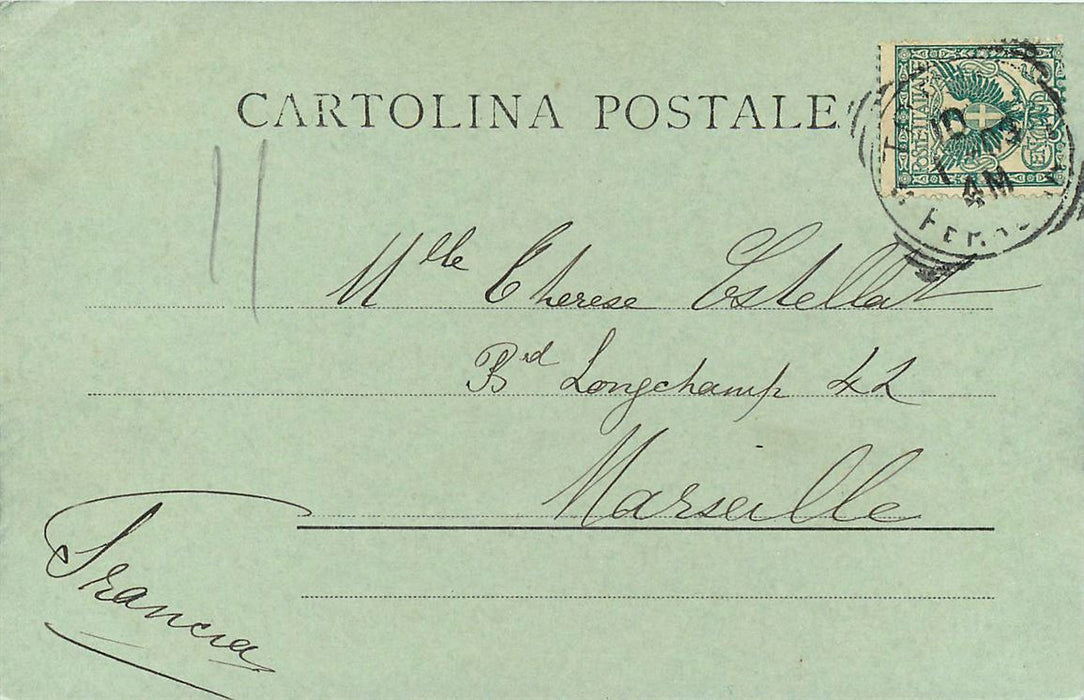 CARTOLINA POSTALE
POSTE ITALIANE
AM
11
Mlle Therese Estellat
Bd Longchamp 42
Marseille
Francia